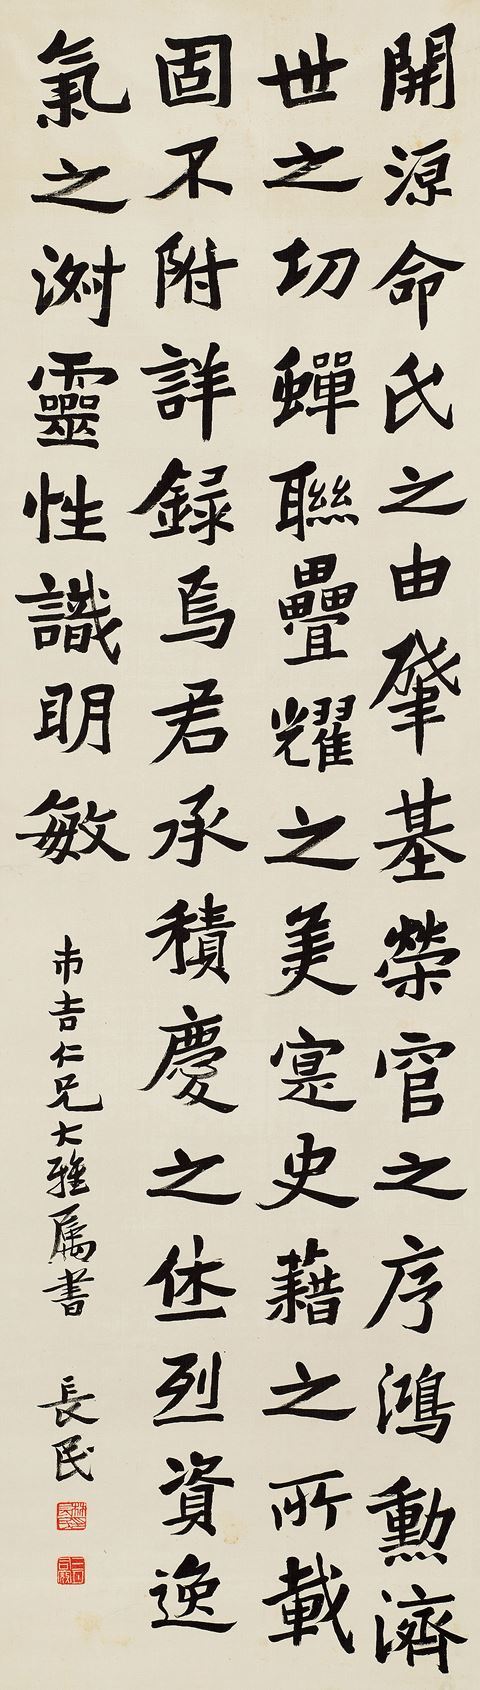 開源命氏之由肇基榮官之序鴻勳濟
世之功蟬聯疊耀之美寔史藉之所載
固不附詳録焉君承積慶之休烈資逸
氣之淑靈性識明敏
市吉仁兄大雅属書
長民